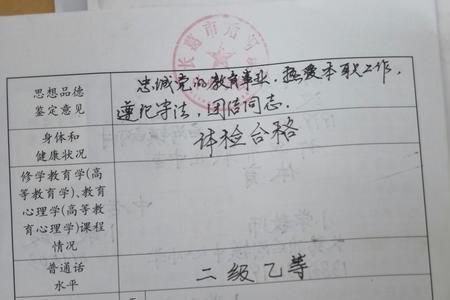 长葛市后河
思想品德
鉴定意见
忠诚党的教育事业,热爱本职工作,
遵纪守法,团结同志.
身体和
健康状况
体检合格
修学教育学(高
等教育学)、教育
心理学(高等教
育心理学)课程
情况
普通话
水平
二级乙等